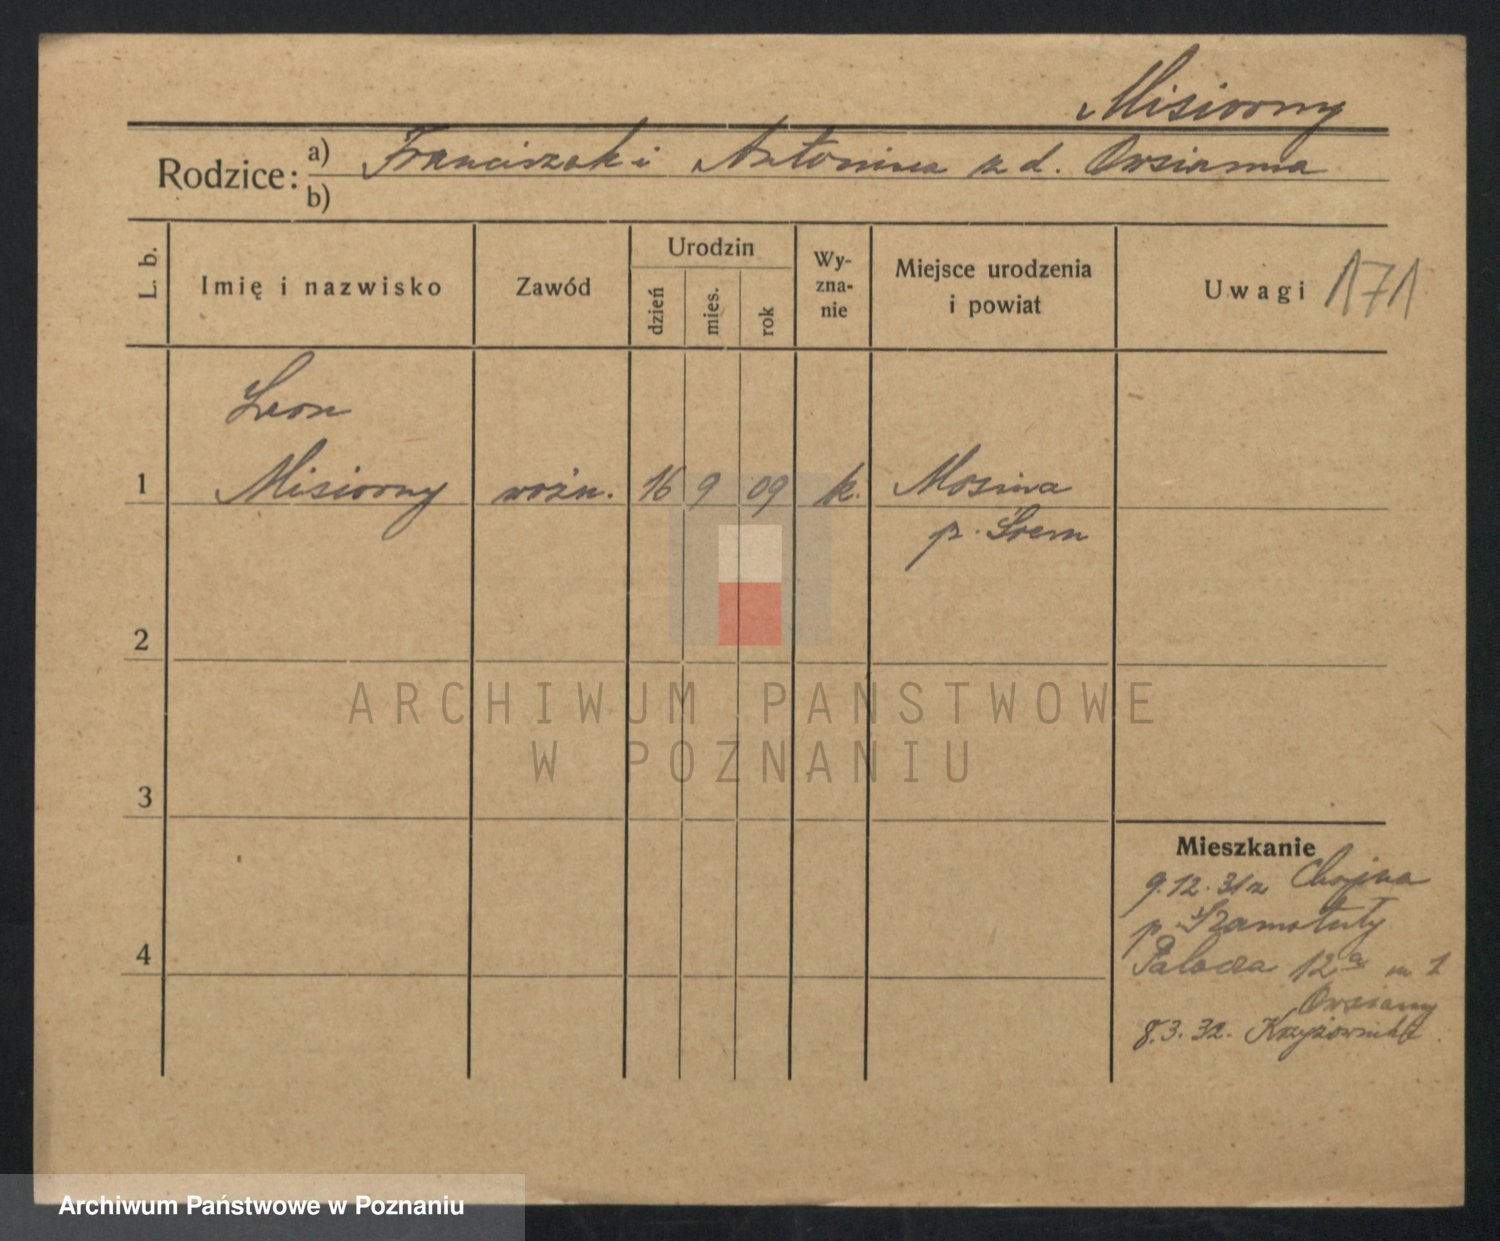 Misiorny
Rodzice: a) Franciszek i Antonina z d. Owsianna
b)
L. b.
Imię i nazwisko
Zawód
Urodzin
dzień
mies.
rok
Wy-
zna-
nie
Miejsce urodzenia
i powiat
Uwagi 171
Leon
1 Misiorny woźn. 16 9 09 k. Mosina
p. Śrem
2
3
4
ARCHIWUM PAŃSTWOWE
W POZNANIU
Mieszkanie
9.12.31 z Chojna
p. Szamotuły
Palacza 12a m 1
Owsiany
8.3.32. Krzyżowniki
Archiwum Państwowe w Poznaniu